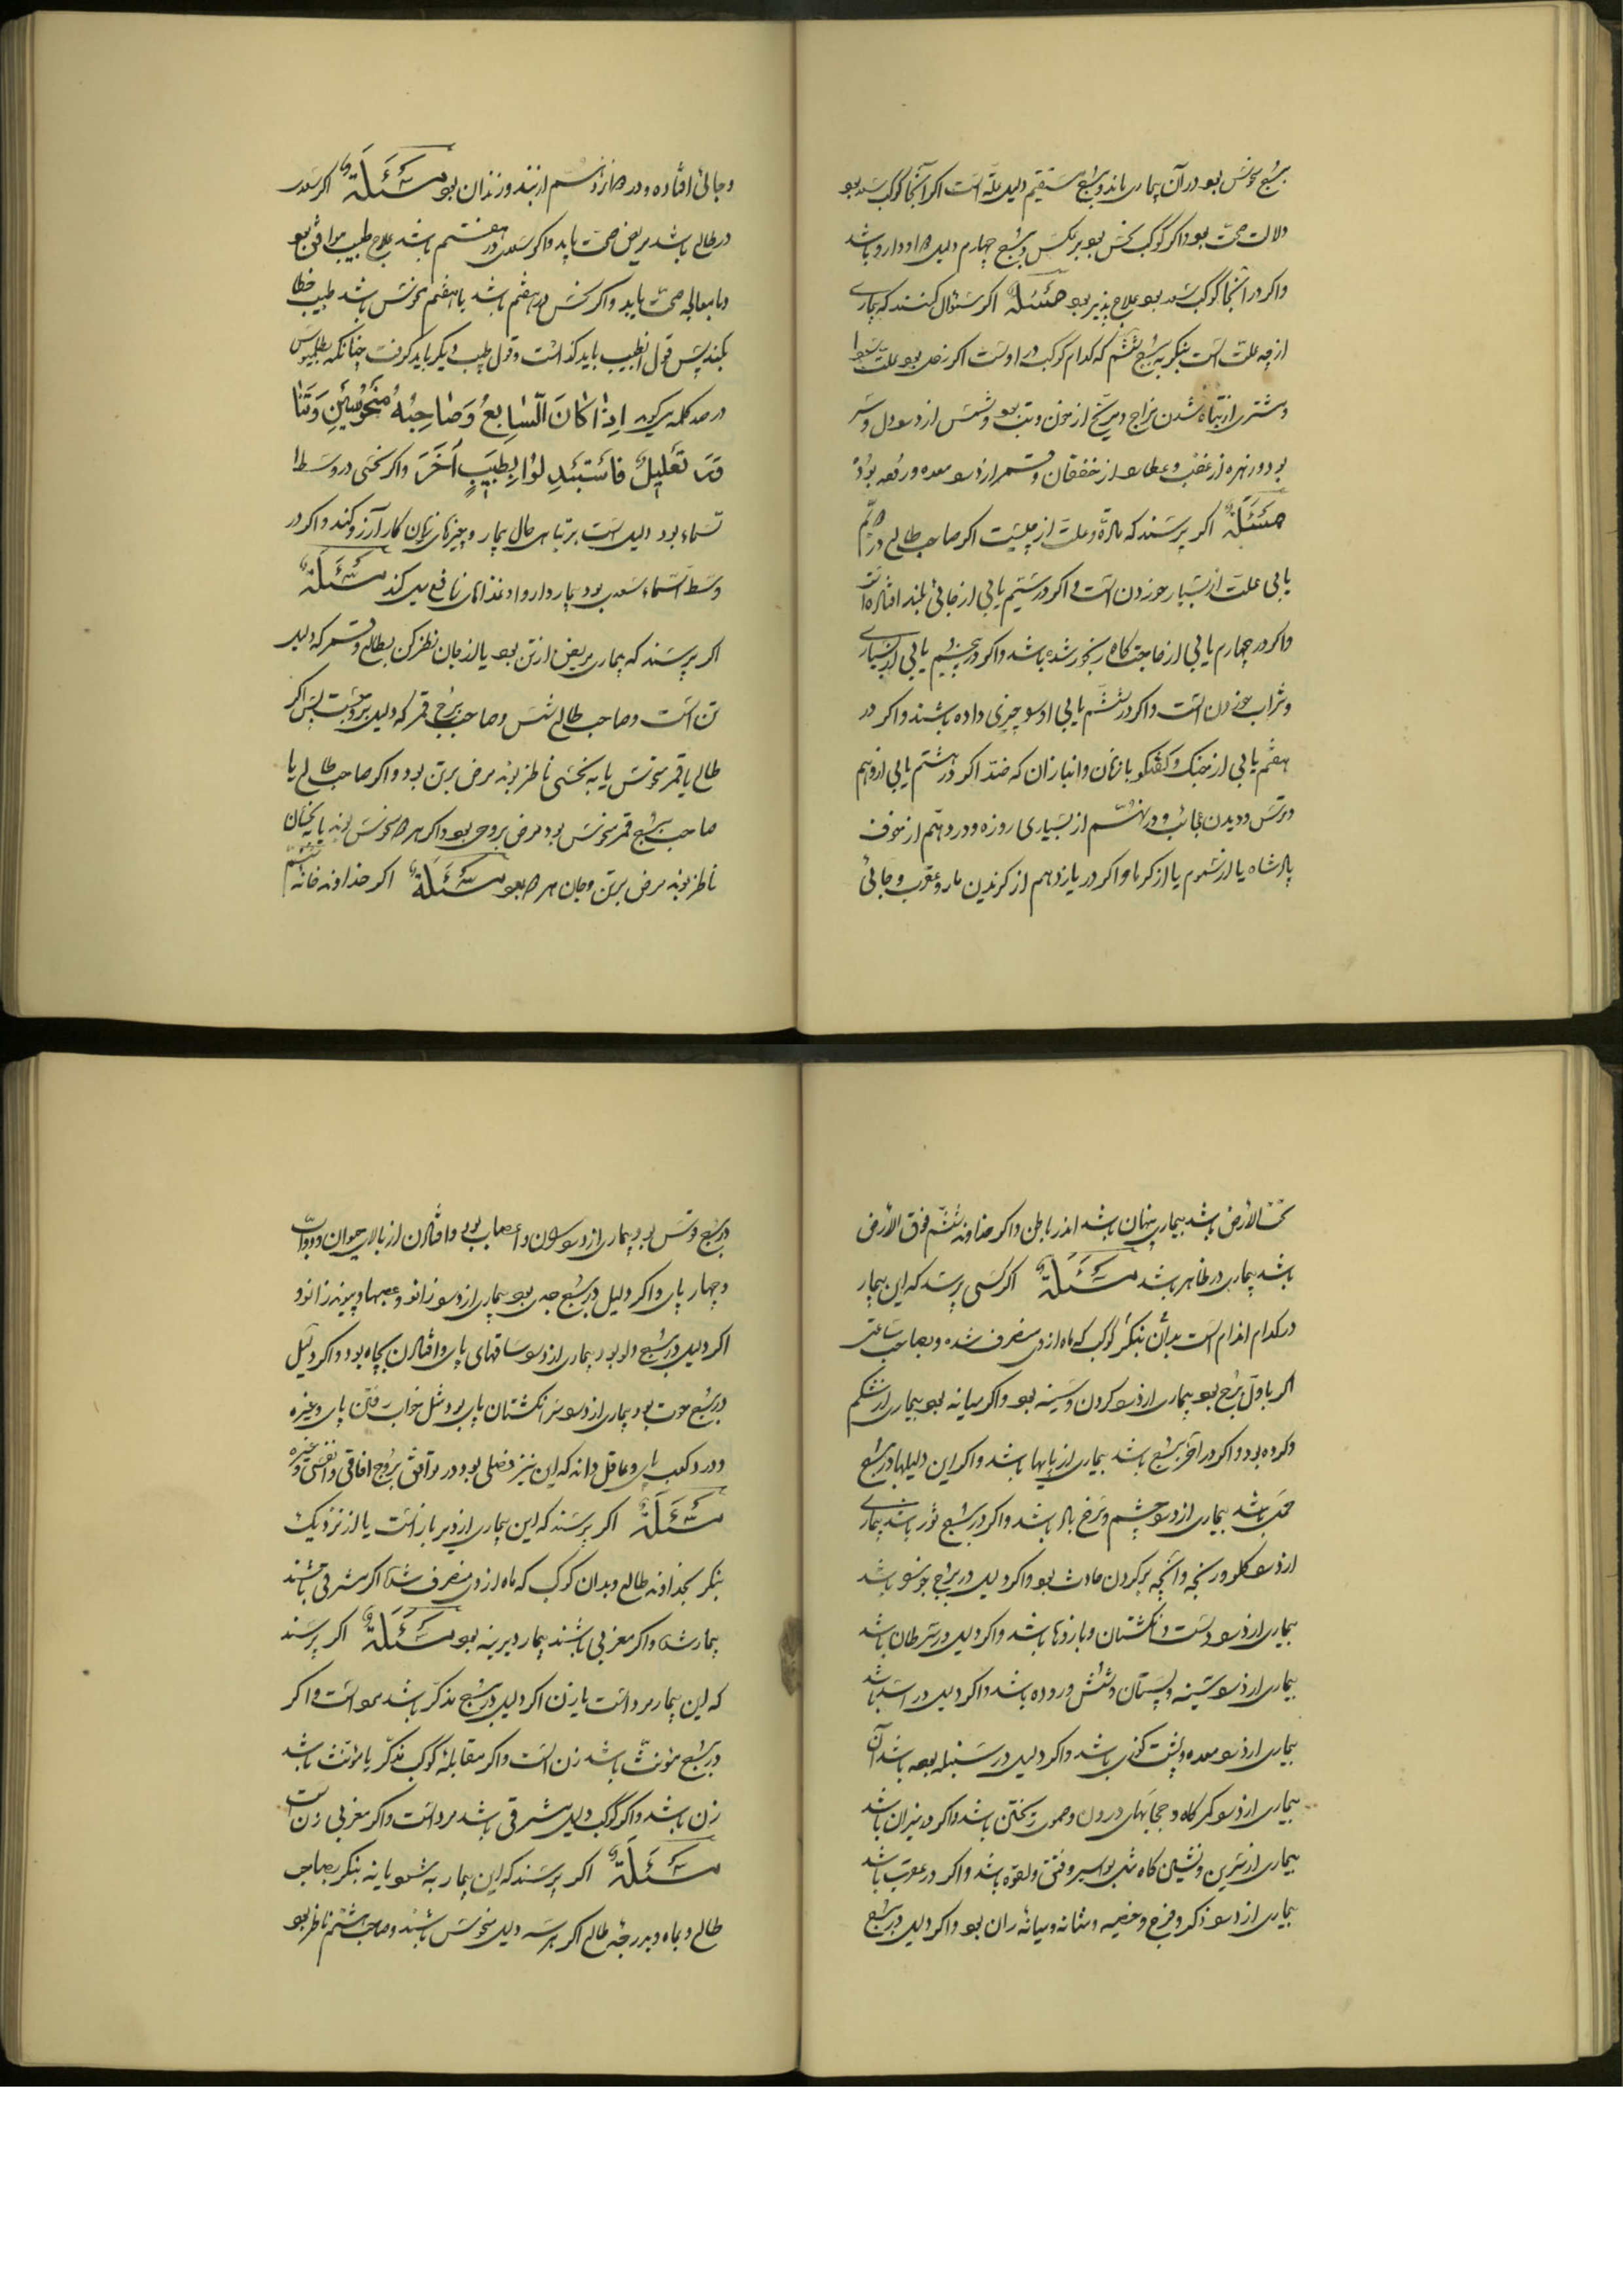 برج منحوس بود در آن بیماری باند و برج مستقیم دلیل علة است اگر آنجا کوکب سعد بود
دلالت صحت بود و اگر کوکب نحس بود برعکس و برج چهارم دلیل دارو باشد
و اگر در آنجا کوکب سعد بود علاج پذیر بود مسئلة اگر سئوال کنند که بیماری
از چه علت است بنگر به برج ششم که کدام کوکب در اوست اگر زحل بود علت سودا
و مشتری از تباه شدن مزاج و مریخ از خون و تب بود و شمس از درد دل و سر
بود و زهره از غضب و عطارد از خفقان و قمر از درد معده و رقعه بود
مسئلة اگر پرسند که مادّه و علت از چیست اگر صاحب طالع در دوم
یابی علت از بسیار خوردن است و اگر در سیّم یابی از جائی بلند افتاده است
و اگر در چهارم یابی از حاجتگاه رنجور شده باشد و اگر در پنجم یابی از بسیاری
و شراب خوردن است و اگر در ششم یابی او را چیزی داده باشند و اگر در
هفتم یابی از جنک و گفتگو با زنان و انبازان که ضد اگر در هشتم یابی از وهم
و ترس و دیدن عجائب و در نهم از بسیاری روزه و در دهم از خوف
پادشاه یا از سموم یا از گرما و اگر در یازدهم از گزیدن مار و عقرب و جائی
و جائی افتاده و در دوازدهم از بند و زندان بود مسئلة اگر سعد
در طالع باشد مریض صحت یابد و اگر سعدی در هفتم باشد علاج طبیب موافق بود
و با معالجه صحت یابد و اگر نحس در هفتم باشد یا هفتم منحوس باشد طبیب خطا
بکند پس قول ان طبیب باید گذاشت و قول طبیب دیگر باید گرفت چنانکه بطلمیوس
در صد کلمه میگوید اِذٰا کٰانَ السّٰابِعُ وَصٰاحِبُهُ مَنْحُوسَیْنِ
تَعلیلٌ فَاسْتَبْدِلُوْا بِطَبِیبٍ اٰخَرَ و اگر نحسی در وسط ا
لسماء بود دلیل است بر تباهی حال بیمار و چیزهای زیان کار آرزو کند و اگر در
وسط السماء سعدی بود بیمار دارو و غذاهای نافع میل کند مسئلة
اگر پرسند که بیماری مریض از تن بود یا از جان نظر کن بطالع و قمر که دلیل
تن است و صاحب طالع شمس و صاحب برج قمر که دلیل روحست پس اگر
طالع یا قمر منحوس یا به نحسی ناظر بوند مرض بر تن بود و اگر صاحب طالع یا
صاحب برج قمر منحوس بود مرض بروح بود و اگر هر دو منحوس بوند یا به نحسان
ناظر بوند مرض بر تن و جان هر دو بود مسئلة اگر خداوند خانه ششم
تحت الارض باشد بیماری پنهان باشد اندر باطن و اگر خداوند ششم فوق الارض
باشد بیماری در ظاهر باشد مسئلة اگر کسی پرسد که این بیمار
در کدام اندام است بدان بنگر کوکب که ماه از وی منصرف شده و بصاحب ساعت
اگر باول برج بود بیماری از درد گردن و سینه بود و اگر میانه بود بیماری از شکم
و گرده بود و اگر در آخر برج باشد بیماری از پایها باشد و اگر این دلیلها در برج
حمل باشد بیماری از درد چشم و زنخ باشد و اگر در برج ثور باشد بیماری
از درد گلو و رنجه و آنچه بر گردن حادث بود و اگر دلیل در برج جوزا باشد
بیماری از درد دست و انگشتان و بازوها باشد و اگر دلیل در سرطان باشد
بیماری از درد سینه و پستان و شش و روده باشد و اگر دلیل در اسد باشد
بیماری از درد معده و پشت باشد و اگر دلیل در سنبله بود باشد آن
بیماری از درد کمرگاه و حجابهای درون و ریختن باشد و اگر در میزان باشد
بیماری از سرین و نشین گاه مثل بواسیر و فتق و لقوه باشد و اگر در عقرب باشد
بیماری از درد ذکر و فرج و خصیه و مثانه و میانه ران بود و اگر دلیل در برج
در برج قوس بود بیماری از درد ران و اعصاب بود و افتادن از بالای حیوان و دوابّ
و چهار پای و اگر دلیل در برج جدی بود بیماری از درد زانو و عصبها و پیوند زانو
اگر دلیل در برج دلو بود بیماری از درد ساقهای پای و افتادن بچاه بود و اگر دلیل
در برج حوت بود بیماری از درد سر انگشتان پای بود مثل خواب رفتن پای و غیره
و درد کعب پای و عاقل داند که این نیز فصلی بود در توافق بروج افاقی و انفسی و غیره
مسئلة اگر پرسند که این بیماری از دیر باز است یا از نزدیک
بنگر بخداوند طالع و بدان کوکب که ماه از وی منصرف شده اگر مشرقی باشند
بیمار شده و اگر مغربی باشند بیمار دیرینه بود مسئلة اگر پرسند
که این بیمار مرد است یا زن اگر دلیل در برج مذکّر باشد مرد است و اگر
در برج مؤنث باشد زن است و اگر مقابله کوکب مذکّر یا مؤنث باشد
زن باشد و اگر کوکب دلیل مشرقی باشد مرد است و اگر مغربی زن است
مسئلة اگر پرسند که این بیمار به شود یا نه بنگر بصاحب
طالع و بماه و بدرجهٔ طالع اگر هر سه دلیل منحوس باشند و صاحب هشتم ناظر بود